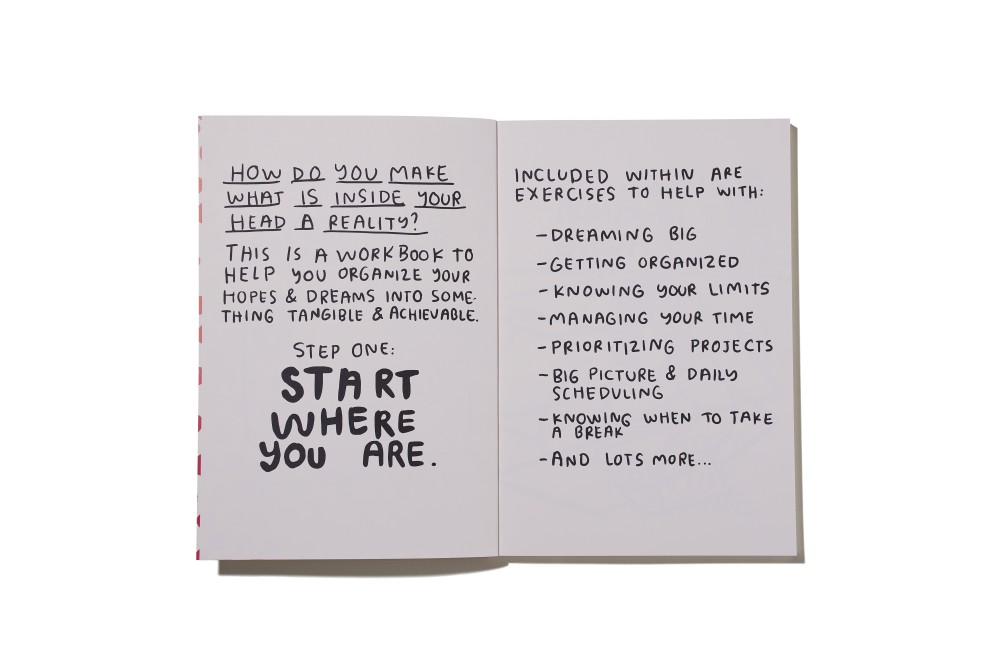 HOW DO YOU MAKE
WHAT IS INSIDE YOUR
HEAD A REALITY?
THIS IS A WORKBOOK TO
HELP YOU ORGANIZE YOUR
HOPES & DREAMS INTO SOME-
THING TANGIBLE & ACHIEVABLE.
STEP ONE:
START
WHERE
YOU ARE.
INCLUDED WITHIN ARE
EXERCISES TO HELP WITH:
- DREAMING BIG
- GETTING ORGANIZED
- KNOWING YOUR LIMITS
- MANAGING YOUR TIME
- PRIORITIZING PROJECTS
- BIG PICTURE & DAILY
SCHEDULING
- KNOWING WHEN TO TAKE
A BREAK
- AND LOTS MORE...